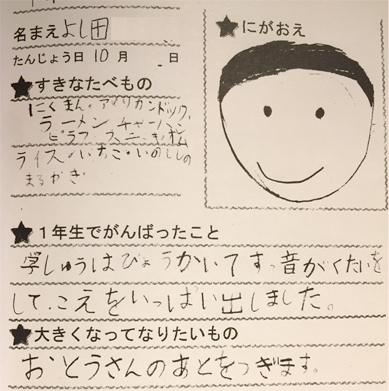 名まえよし田
たんじょう日 10月 日
★にがおえ
★すきなたべもの
にくまん。アメリカンドック、
ラーメン チャーハン
ピラフ
ライス、いちご、いのししの
まるかぎ
★1年生でがんばったこと
学しゅうはぴょうかいで 音がくたいを
して、こえをいっぱい出しました。
★大きくなってなりたいもの
おとうさんのあとをつぎます。